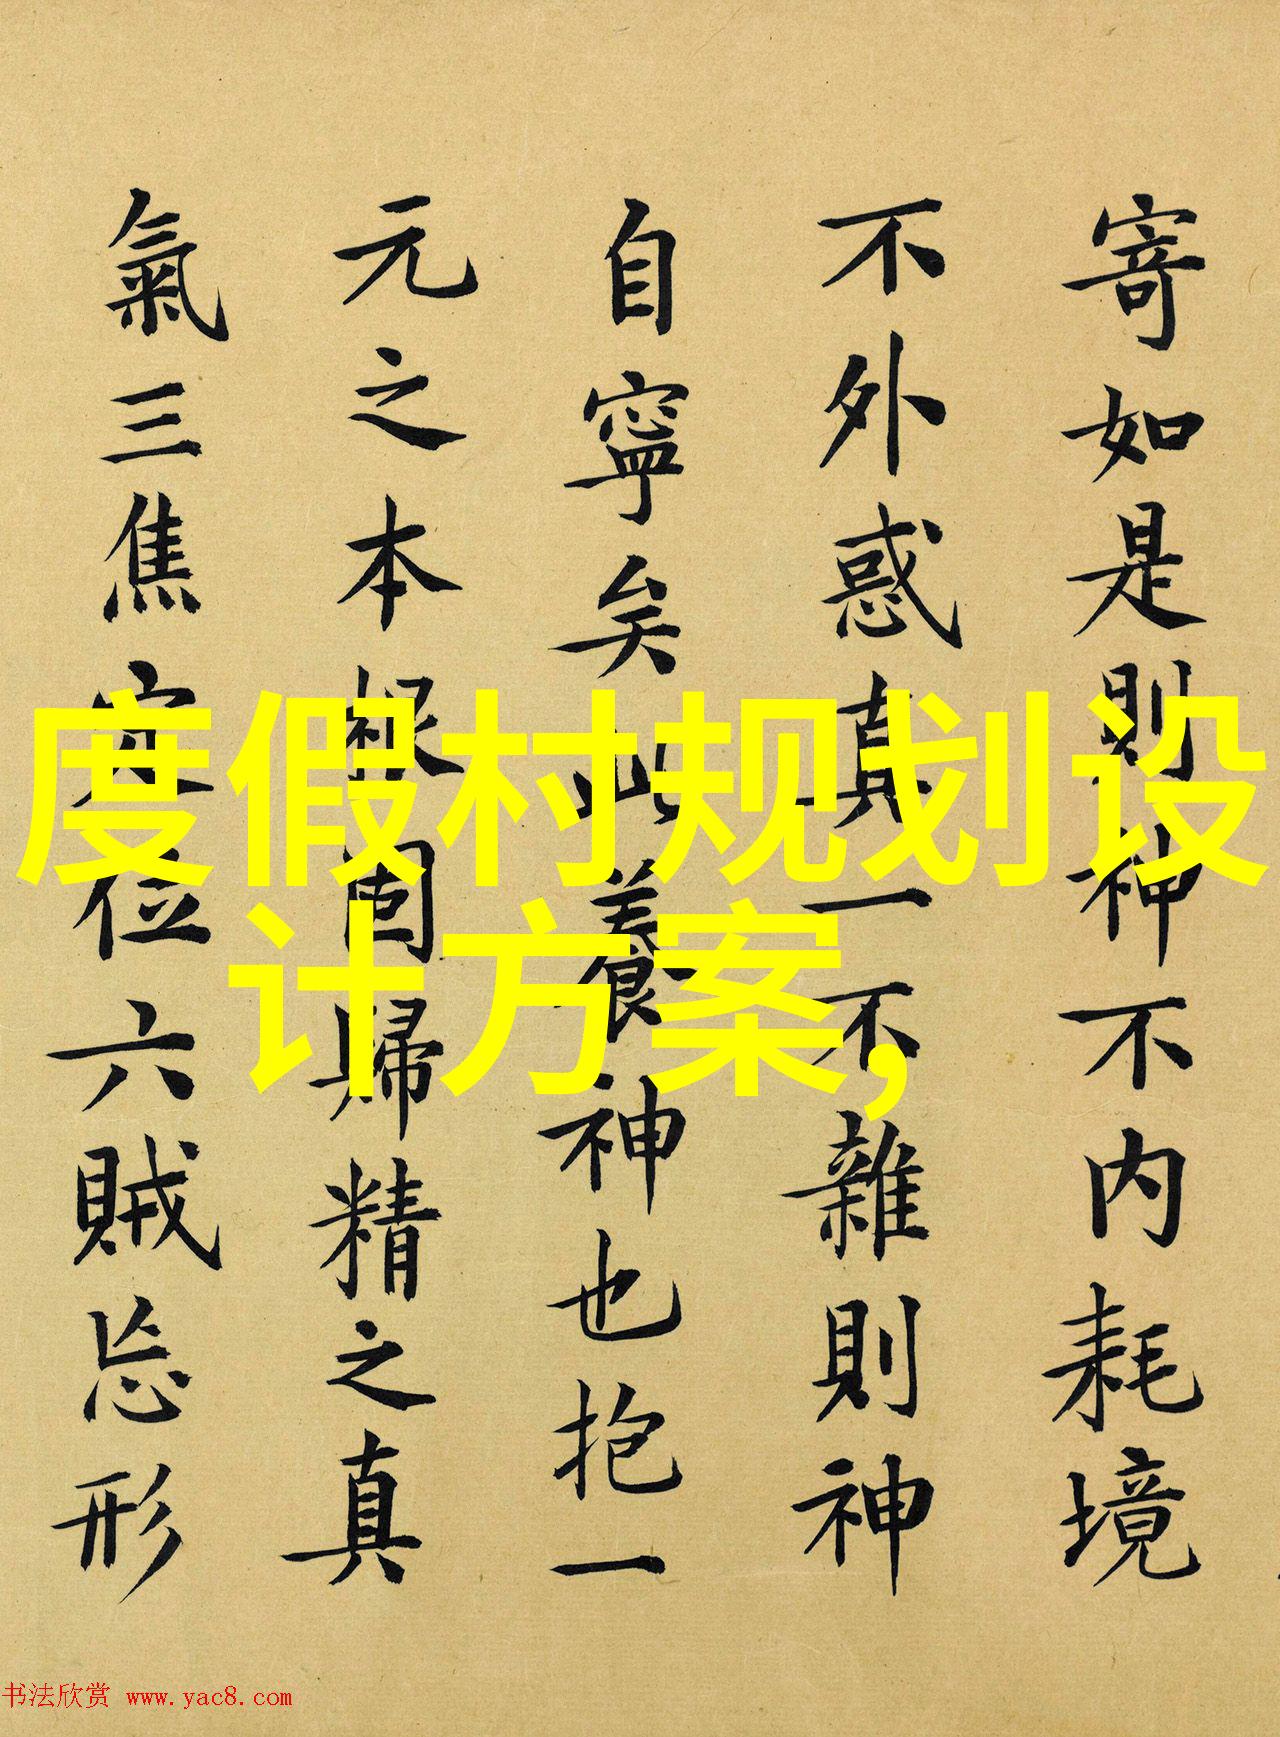 寄如是則神不内耗境
不外惑真一不雜則神
自寧矣此養神也抱一
元之本根固歸精之真
氣三焦定位六賊忘形
度假村规划设
计方案,
书法欣赏 www.yac8.com